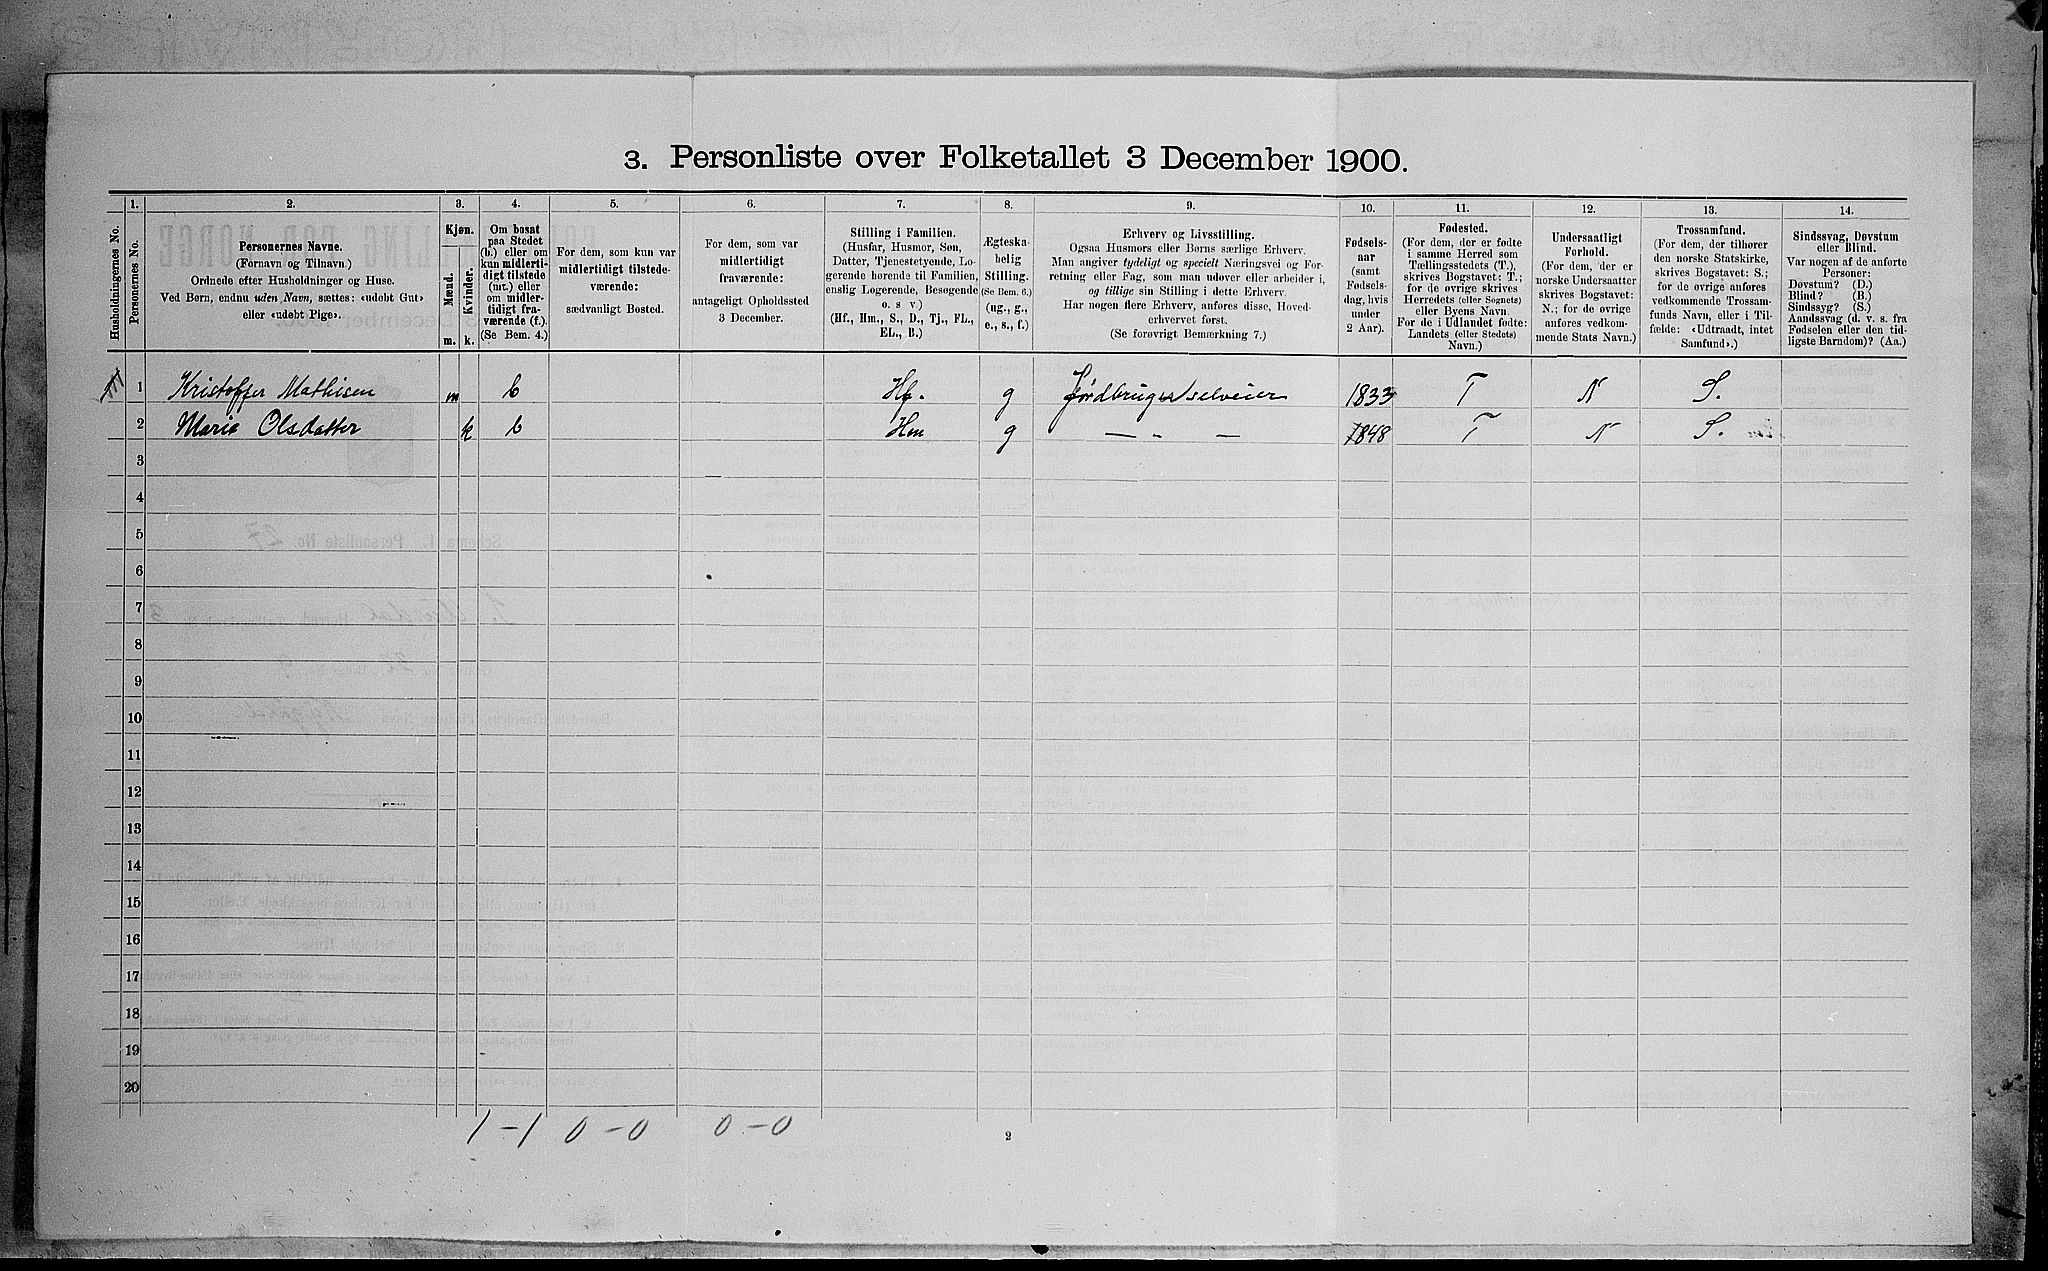 3. Personliste over Folketallet 3 December 1900.
1. 2. 3. 4. 5. 6. 7. 8. 9. 10. 11. 12. 13. 14.
Husholdningernes No.
Personernes No.
Personernes Navne.
(Fornavn og Tilnavn.)
Ordnede efter Husholdninger og Huse.
Ved Børn, endnu uden Navn, sættes: «udøbt Gut»
eller «udøbt Pige».
Kjøn.
Mænd.
Kvinder.
m. k.
Om bosat
paa Stedet
(b.) eller om
kun midlerti-
digt tilstede
(mt.) eller
om midler-
tidigt fra-
værende (f.)
(Se Bem. 4.)
For dem, som kun var
midlertidigt tilstede-
værende:
sædvanligt Bosted.
For dem, som var
midlertidigt
fraværende:
antageligt Opholdssted
3 December.
Stilling i Familien.
(Husfar, Husmor, Søn,
Datter, Tjenestetyende, Lo-
gerende hørende til Familien,
enslig Logerende, Besøgende
o. s v.)
(Hf., Hm., S., D., Tj., FL.,
EL., B.)
Ægteska-
belig
Stilling.
(Se Bem. 6.)
(ug., g.,
e., s., f.)
Erhverv og Livsstilling.
Ogsaa Husmors eller Børns særlige Erhverv.
Man angiver tydeligt og specielt Næringsvei og For-
retning eller Fag, som man udøver eller arbeider i,
og tillige sin Stilling i dette Erhverv.
Har nogen flere Erhverv, anføres disse, Hoved-
erhvervet først.
(Se forøvrigt Bemærkning 7.)
Fødsels-
aar
(samt
Fødsels-
dag, hvis
under
2 Aar).
Fødested.
(For dem, der er fødte
i samme Herred som
Tællingsstedets (T.),
skrives Bogstavet: T.;
for de øvrige skrives
Herredets (eller Sognets)
eller Byens Navn.
For de i Udlandet fødte:
Landets (eller Stedets)
Navn.)
Undersaatligt
Forhold.
(For dem, der er
norske Undersaatter
skrives Bogstavet:
N.; for de øvrige
anføres vedkom-
mende Stats Navn.)
Trossamfund.
(For dem, der tilhører
den norske Statskirke,
skrives Bogstavet: S.;
for de øvrige anføres
vedkommende Trossam-
funds Navn, eller i Til-
fælde: «Udtraadt, intet
Samfund».)
Sindssvag, Døvstum
eller Blind.
Var nogen af de anførte
Personer:
Døvstum? (D.)
Blind? (B.)
Sindssyg? (S.)
Aandssvag (d. v. s. fra
Fødselen eller den tid-
ligste Barndom)? (Aa.)
1 Kristoffer Mathisen m b Hf. g Jordbruger selveier 1833 T N S.
2 Marie Olsdatter k b Hm g — - — 1848 T N S.
3
4
5
6
7
8
9
10
11
12
13
14
15
16
17
18
19
20
1 – 1 0 – 0 0 – 0
2